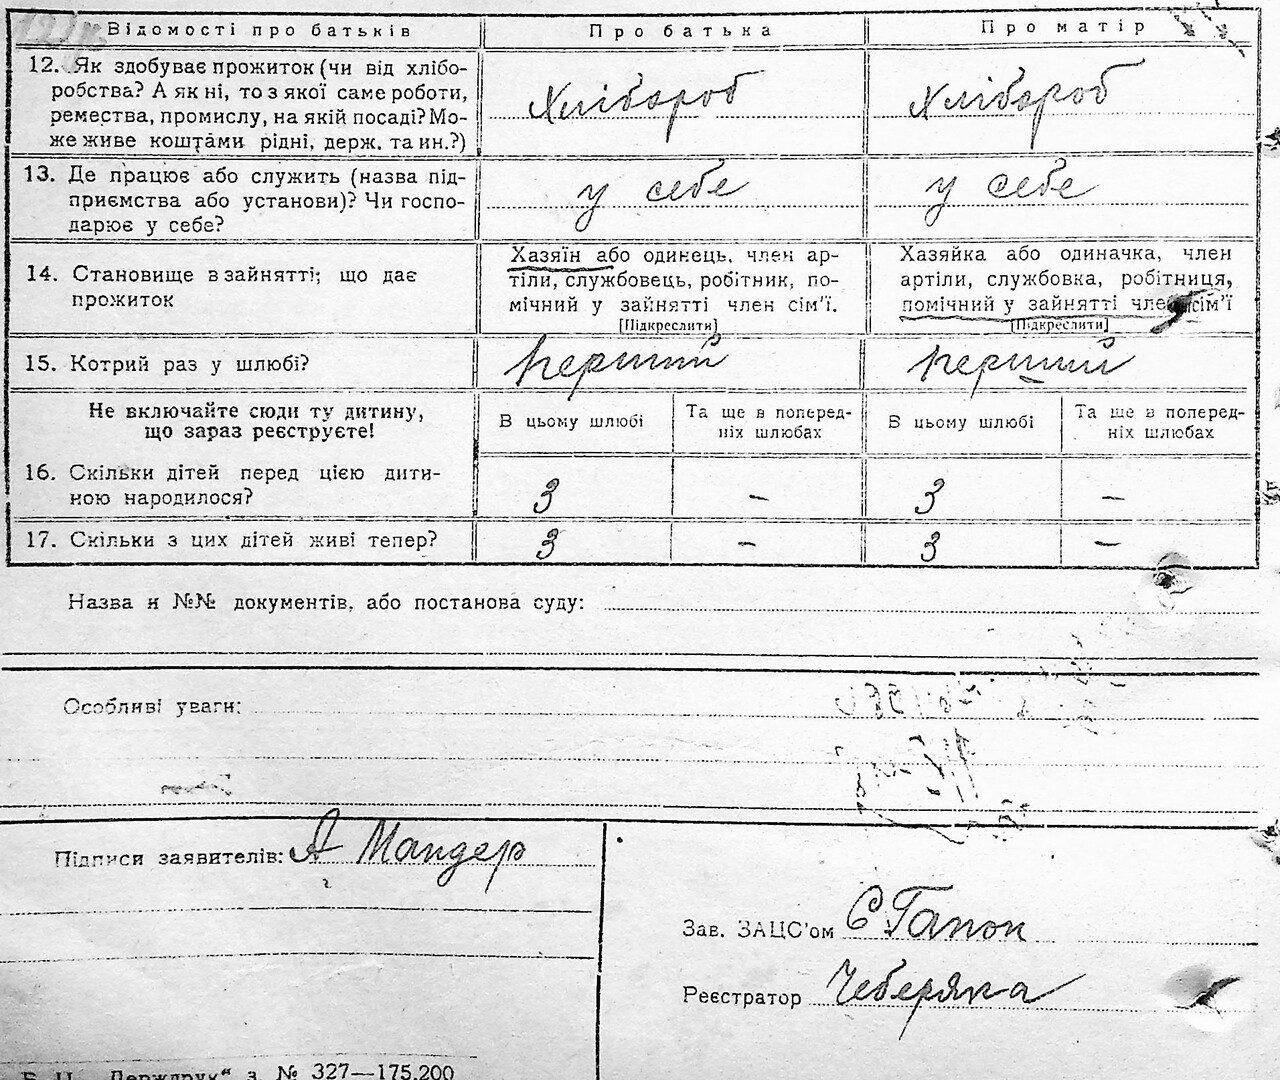 Відомості про батьків Про батька Про матір
12. Як здобуває прожиток (чи від хлібо-
робства? А як ні, то з якої саме роботи,
ремества, промислу, на якій посаді? Мо-
же живе коштами рідні, держ. та ин.?)
Хлібороб Хлібороб
13. Де працює або служить (назва під-
приємства або установи)? Чи госпо-
дарює у себе?
у себе у себе
14. Становище в зайнятті; що дає
прожиток
Хазяїн або одинець, член ар-
тіли, службовець, робітник, по-
мічний у зайнятті член сім'ї.
[Підкреслити]
Хазяйка або одиначка, член
артіли, службовка, робітниця,
помічний у зайнятті член сім'ї
[Підкреслити]
15. Котрий раз у шлюбі? перший перший
Не включайте сюди ту дитину,
що зараз реєструєте!
В цьому шлюбі
Та ще в поперед-
ніх шлюбах
В цьому шлюбі
Та ще в поперед-
ніх шлюбах
16. Скільки дітей перед цією дити-
ною народилося?
3 – 3 –
17. Скільки з цих дітей живі тепер? 3 – 3 –
Назва и №№ документів, або постанова суду:
Особливі уваги:
Підписи заявителів: А Мандер
Зав. ЗАЦС'ом Є Гапон
Реєстратор Чеберяка
Держдрук" з. № 327—175.200